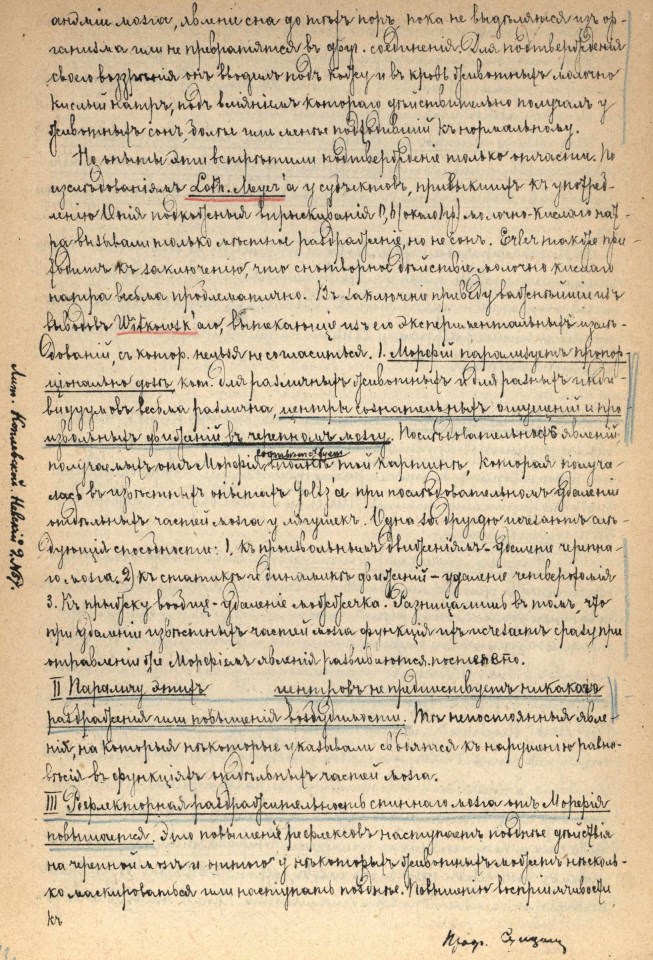 анэміи мозга, явленіе сна до тѣхъ поръ, пока не выдѣлятся изъ ор-
ганизма или не превратятся въ друг. соединенія. Для подтвержденія
своего воззрѣнія онъ вводилъ подъ кожу и въ кровь животныхъ молочно
кислый натръ, подъ вліяніемъ котораго дѣйствительно получалъ у
животныхъ сонъ, болѣе или менѣе подходившій къ нормальному.
Но опыты эти встрѣтили подтвержденіе только отчасти. По
изслѣдованіямъ Loth. Meyer'а у субъектовъ, привыкшихъ къ употреб-
ленію Опія подкожныя впрыскиванія молочно-кислаго нат-
ра вызывали только мѣстное раздраженіе, но не сонъ. Erler также при-
ходитъ къ заключенію, что снотворное дѣйствіе молочно кислаго
натра весьма проблематично. Въ заключеніе приведу важнѣйшіе изъ
выводовъ Witkowsk'аго, вытекающіе изъ его экспериментальныхъ изслѣ-
дованій, съ котор. нельзя не согласиться. 1. Морфій парализуетъ пропор-
ціонально дозѣ, кот. для различныхъ животныхъ и для разныхъ инди-
видуумовъ весьма различна, центры сознательныхъ ощущеній и про-
извольныхъ движеній въ черепномъ мозгу. Послѣдовательность явленій
получаемыхъ отъ Морфія соотвѣтствуетъ вполнѣ той картинѣ, которая получа-
лась въ извѣстныхъ опытахъ Goltz'а при послѣдовательномъ удаленіи
отдѣльныхъ частей мозга у лягушекъ. Одна за другою исчезаютъ слѣ-
дующія способности: 1. къ произвольнымъ движеніямъ - удаленіе черепна-
го мозга. 2) къ статикѣ и динамикѣ движеній - удаленіе четверохолмія
3. Къ прыжку вообще - удаленіе мозжечка. Разница лишь въ томъ, что
при удаленіи извѣстныхъ частей мозга функція ихъ исчезаетъ сразу при
отравленіи же Морфіемъ явленія развиваются постепенно.
II Параличу этихъ центровъ не предшествуетъ никакого
раздраженія или повышенія возбудимости. Тѣ непостоянныя явле-
нія, на которыя нѣкоторые указывали сводятся къ нарушенію равно-
вѣсія въ функціяхъ отдѣльныхъ частей мозга.
III Рефлекторная раздражительность спиннаго мозга отъ Морфія
повышается. Это повышеніе рефлексовъ наступаетъ позднѣе дѣйствія
на черепной мозгъ и оттого у нѣкоторыхъ животныхъ можетъ нѣсколь-
ко маскироваться или наступать позднѣе. Повышенію воспріимчивости
къ
Проф.
Лит. Невскій